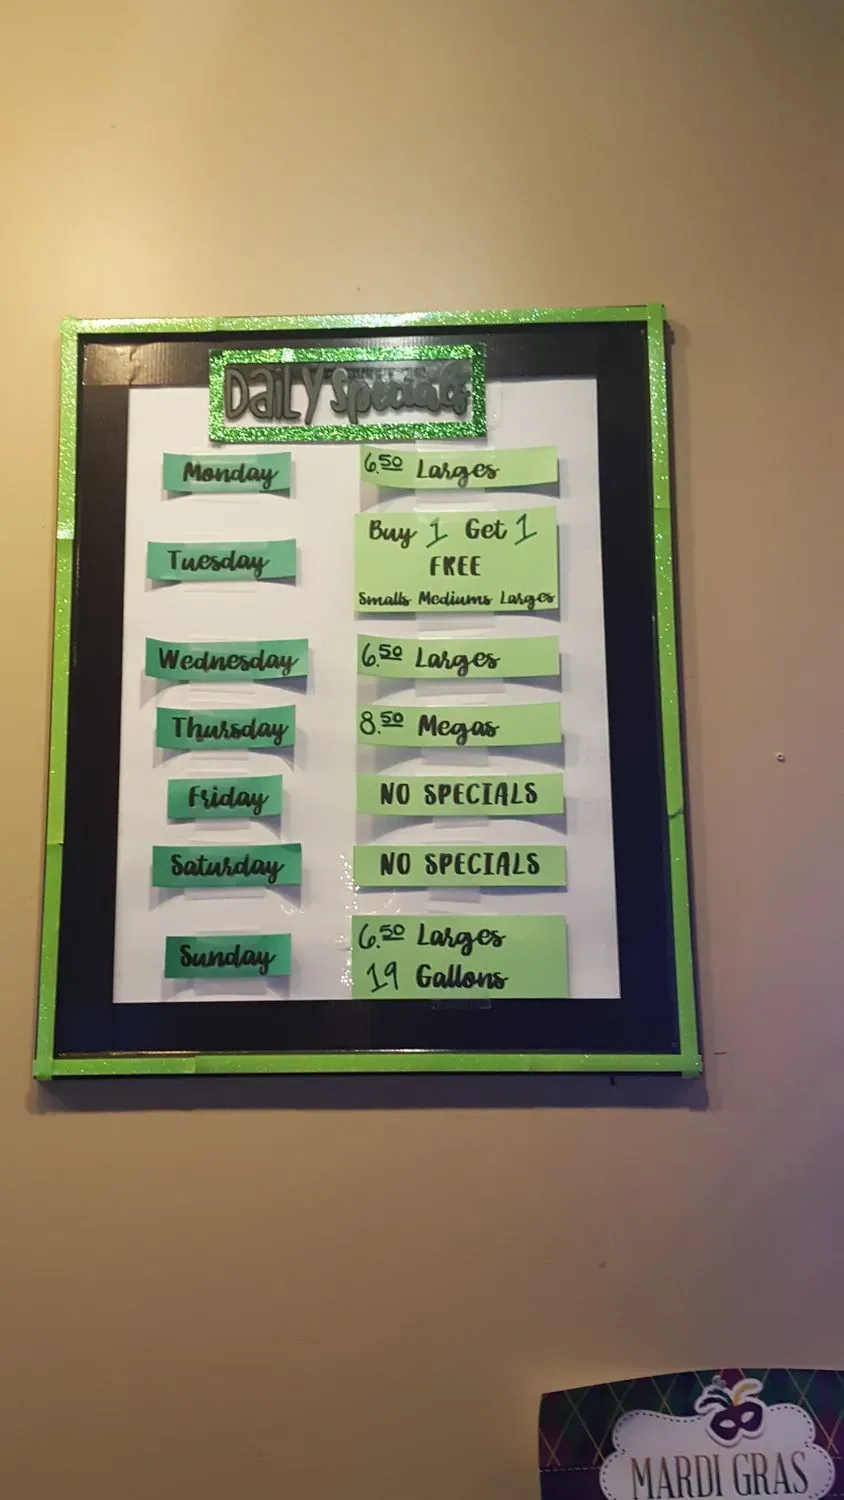 Daily Specials
Monday
6.50 Larges
Tuesday
Buy 1 Get 1
FREE
Smalls Mediums Larges
Wednesday
6.50 Larges
Thursday
8.50 Megas
Friday
NO SPECIALS
Saturday
NO SPECIALS
Sunday
6.50 Larges
19 Gallons
MARDI GRAS